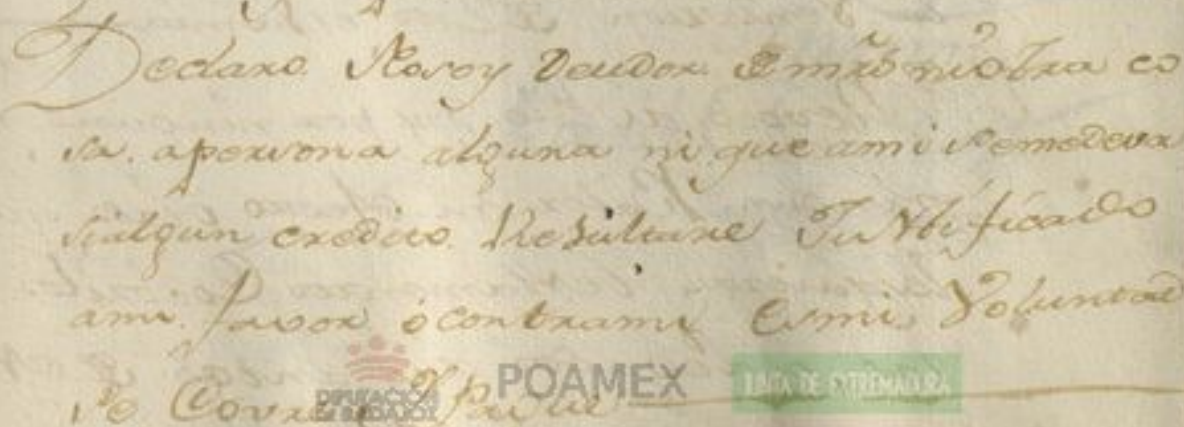 Declaro Nosoy Deudor de mrs ni otra co
sa. apersona alguna ni que ami semedeva
sialgun credito Resultare Justificado
ami favor ó contrami es mi Voluntad
se Covre y Pague
DIPUTACIÓN DE BADAJOZ POAMEX JUNTA DE EXTREMADURA